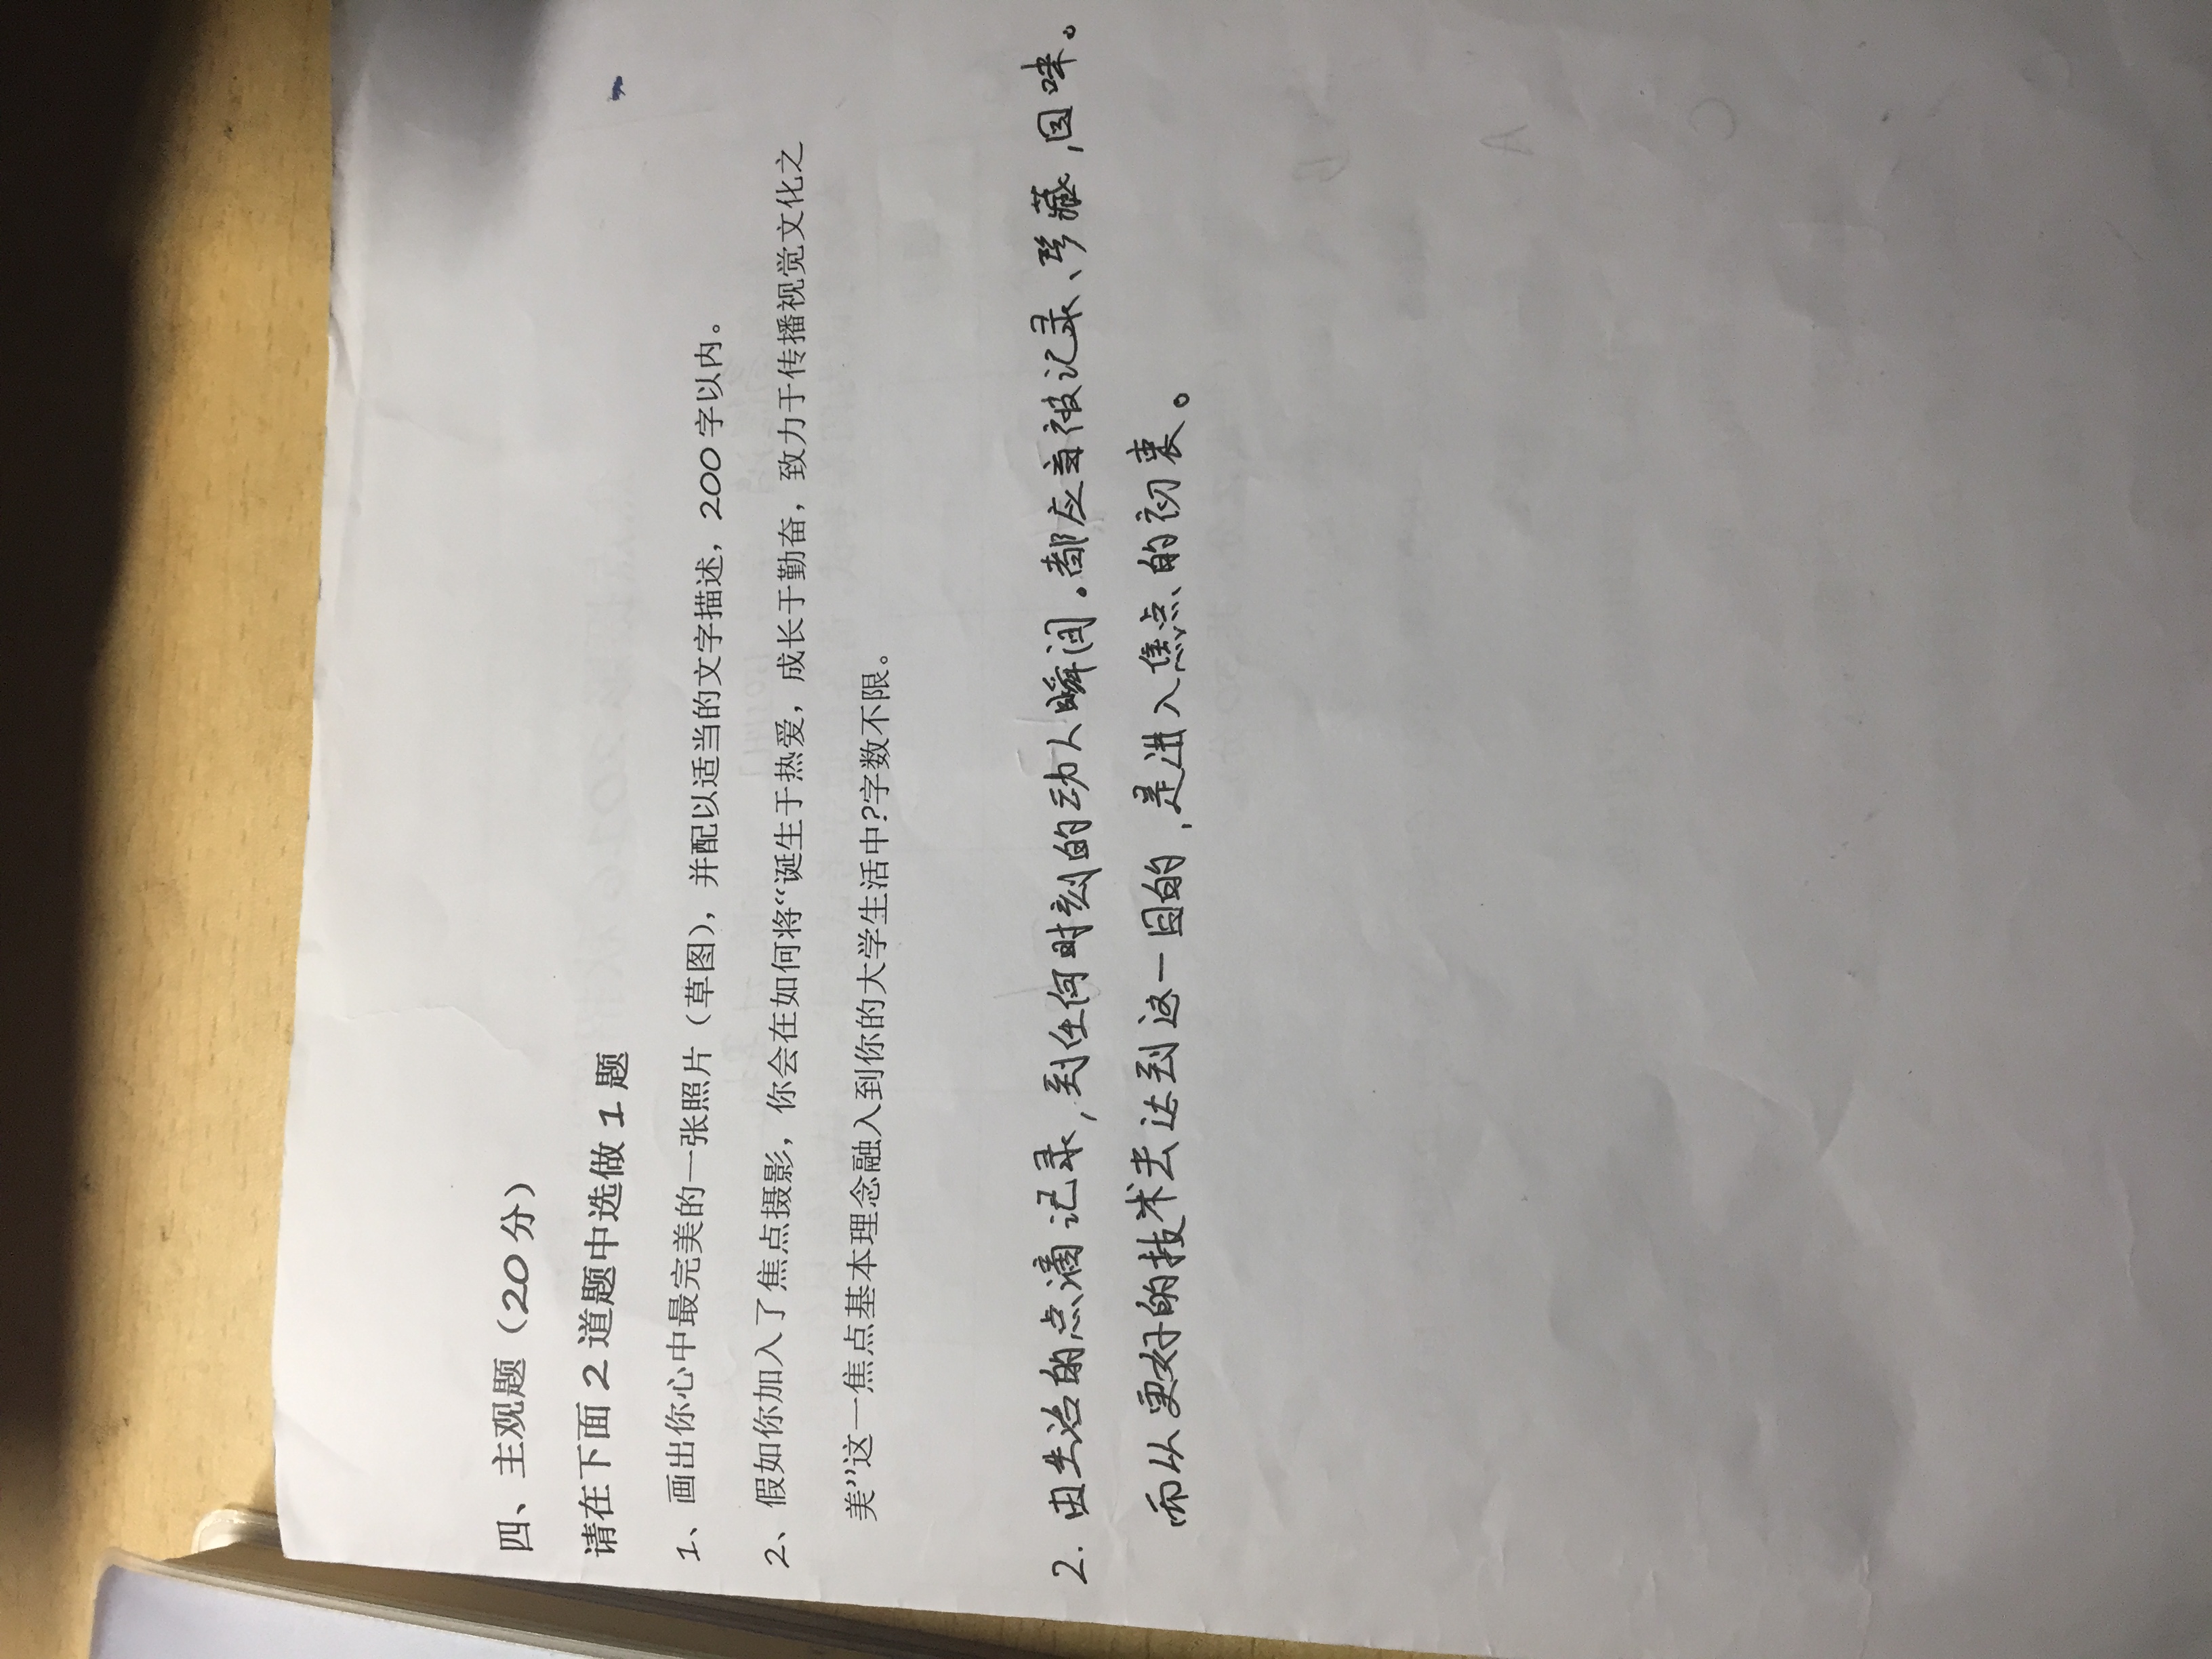 四、主观题（20分）
请在下面2道题中选做1题
1、画出你心中最完美的一张照片（草图），并配以适当的文字描述，200字以内。
2、假如你加入了焦点摄影，你会在如何将“诞生于热爱，成长于勤奋，致力于传播视觉文化之
美”这一焦点基本理念融入到你的大学生活中?字数不限。
2. 由生活的点滴记录,到任何时刻的动人瞬间。都应当被记录、珍藏,回味。
而从更好的技术去达到这一目的,是进入焦点的初衷。